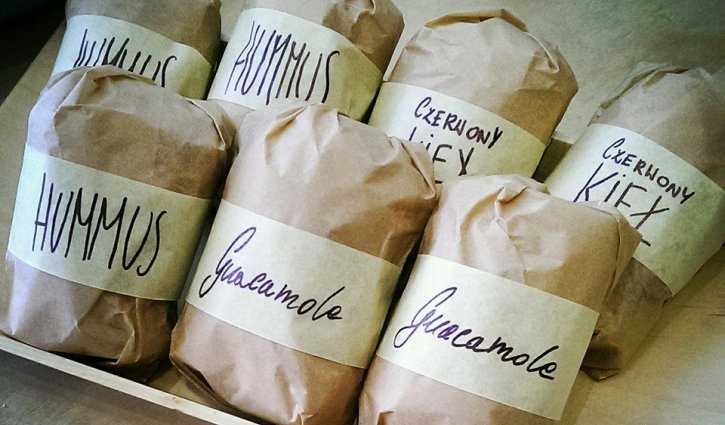 HUMMUS
HUMMUS
CZERWONY
KIEX
CZERWONY
KIEX
HUMMUS
Guacamole
Guacamole